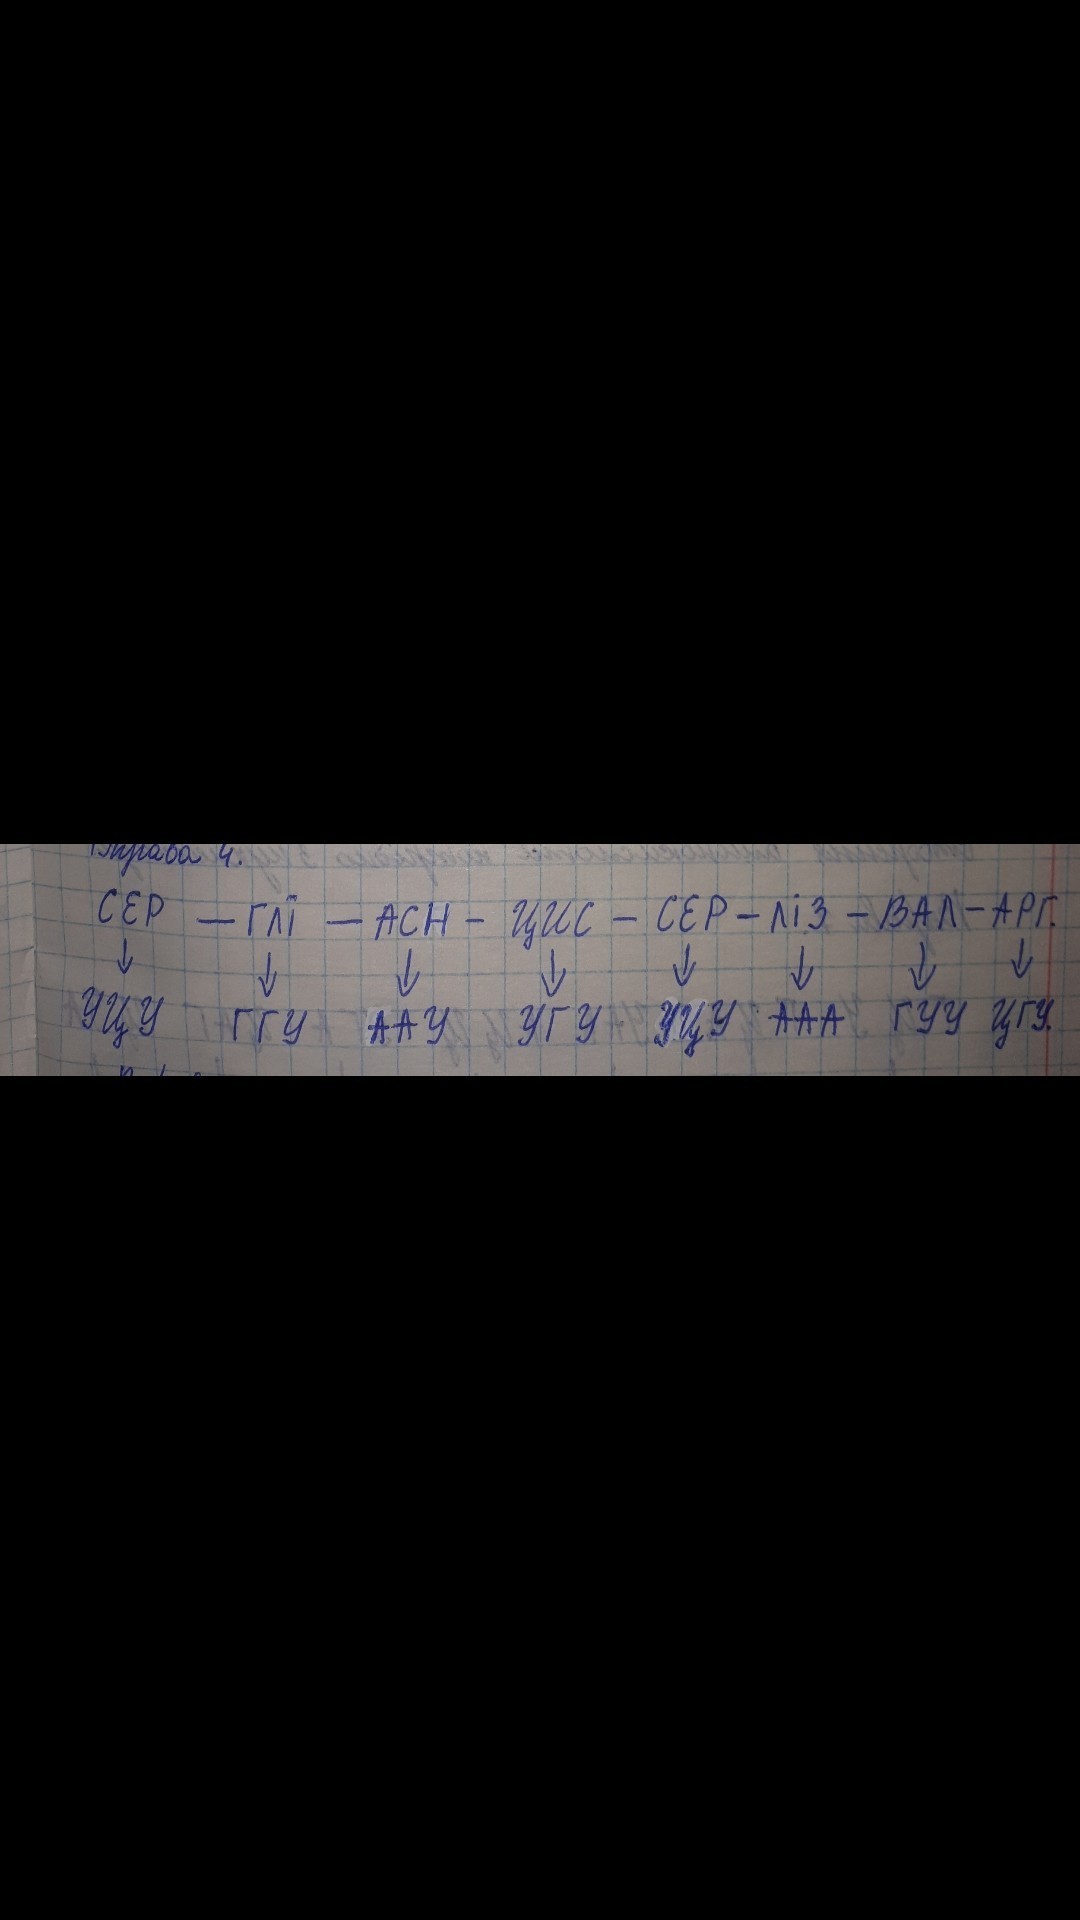 Вправа 4.
СЕР — ГЛІ — АСН - ЦИС - СЕР - ЛІЗ - ВАЛ - АРГ.
УЦУ ГГУ ААУ УГУ УЦУ ААА ГУУ ЦГУ.